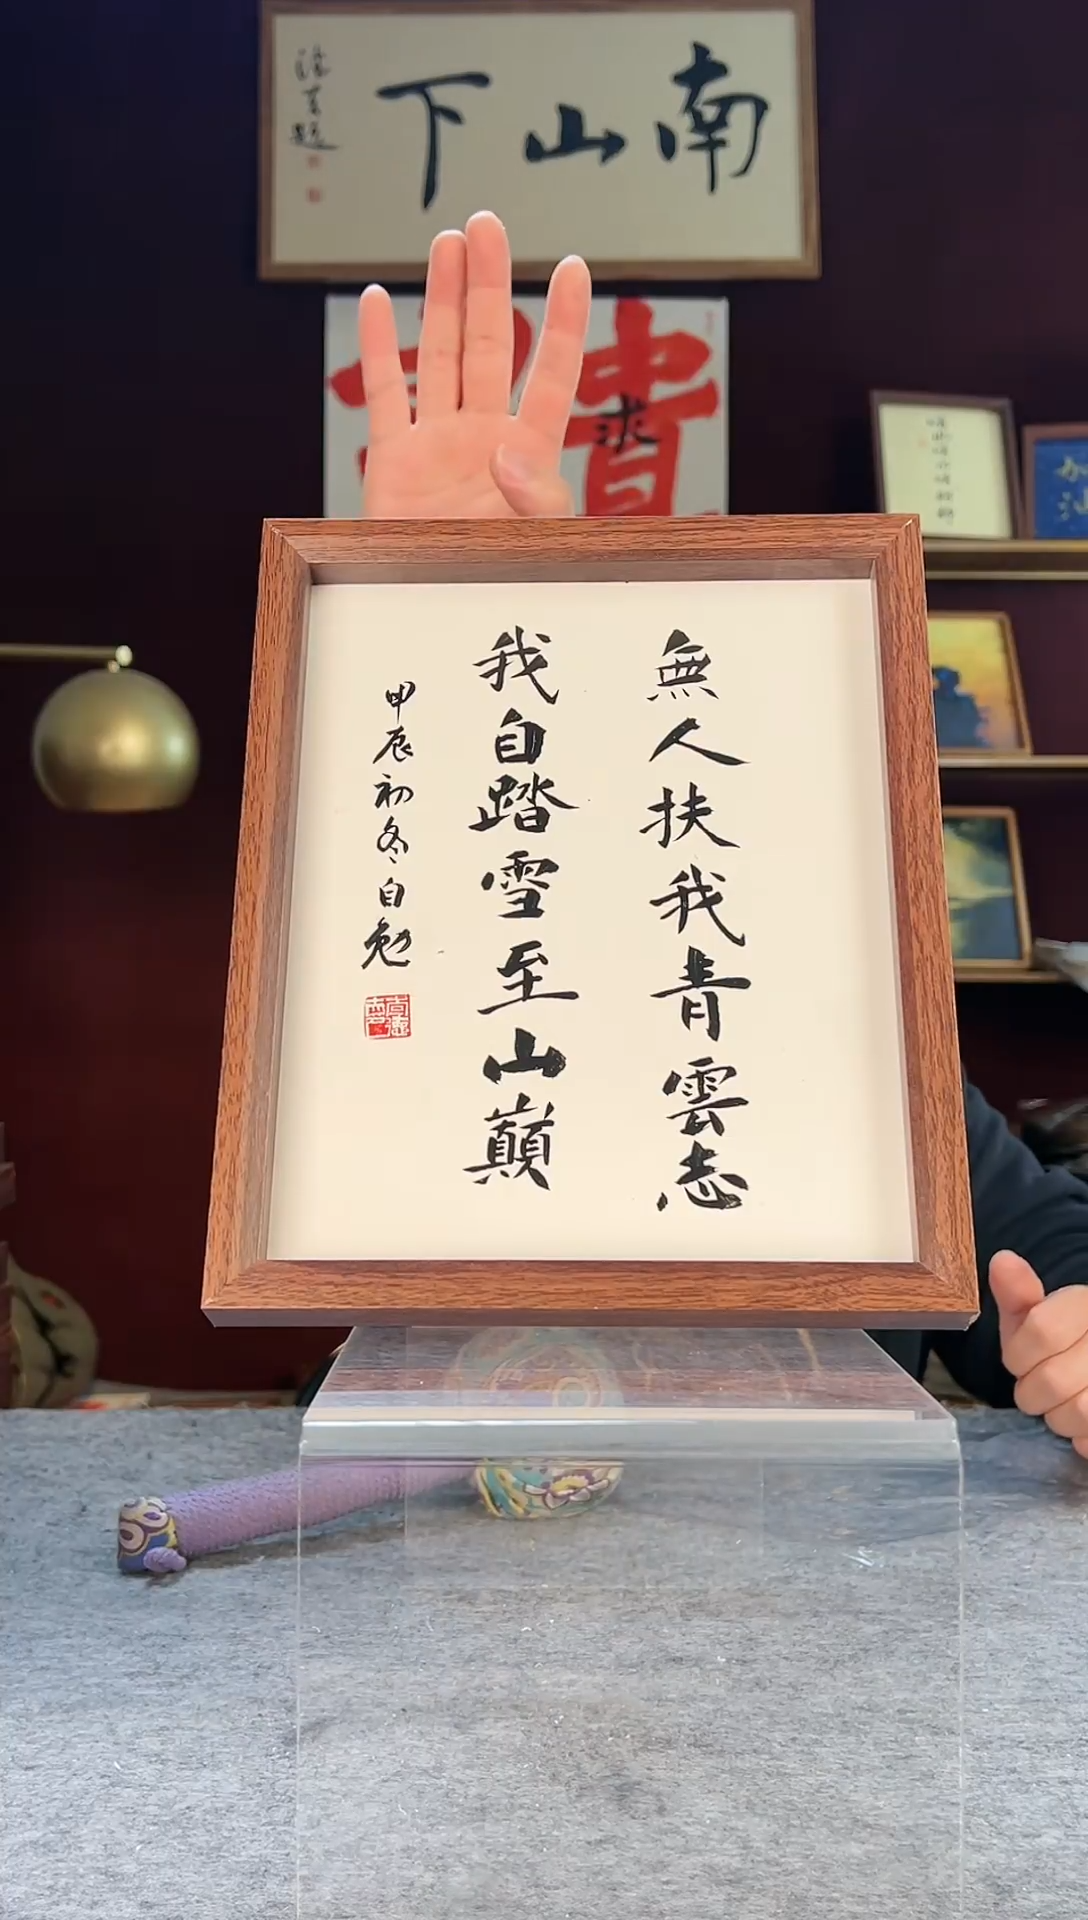 南山下
無人扶我青雲志
我自踏雪至山巔
甲辰初冬自勉
求
加油